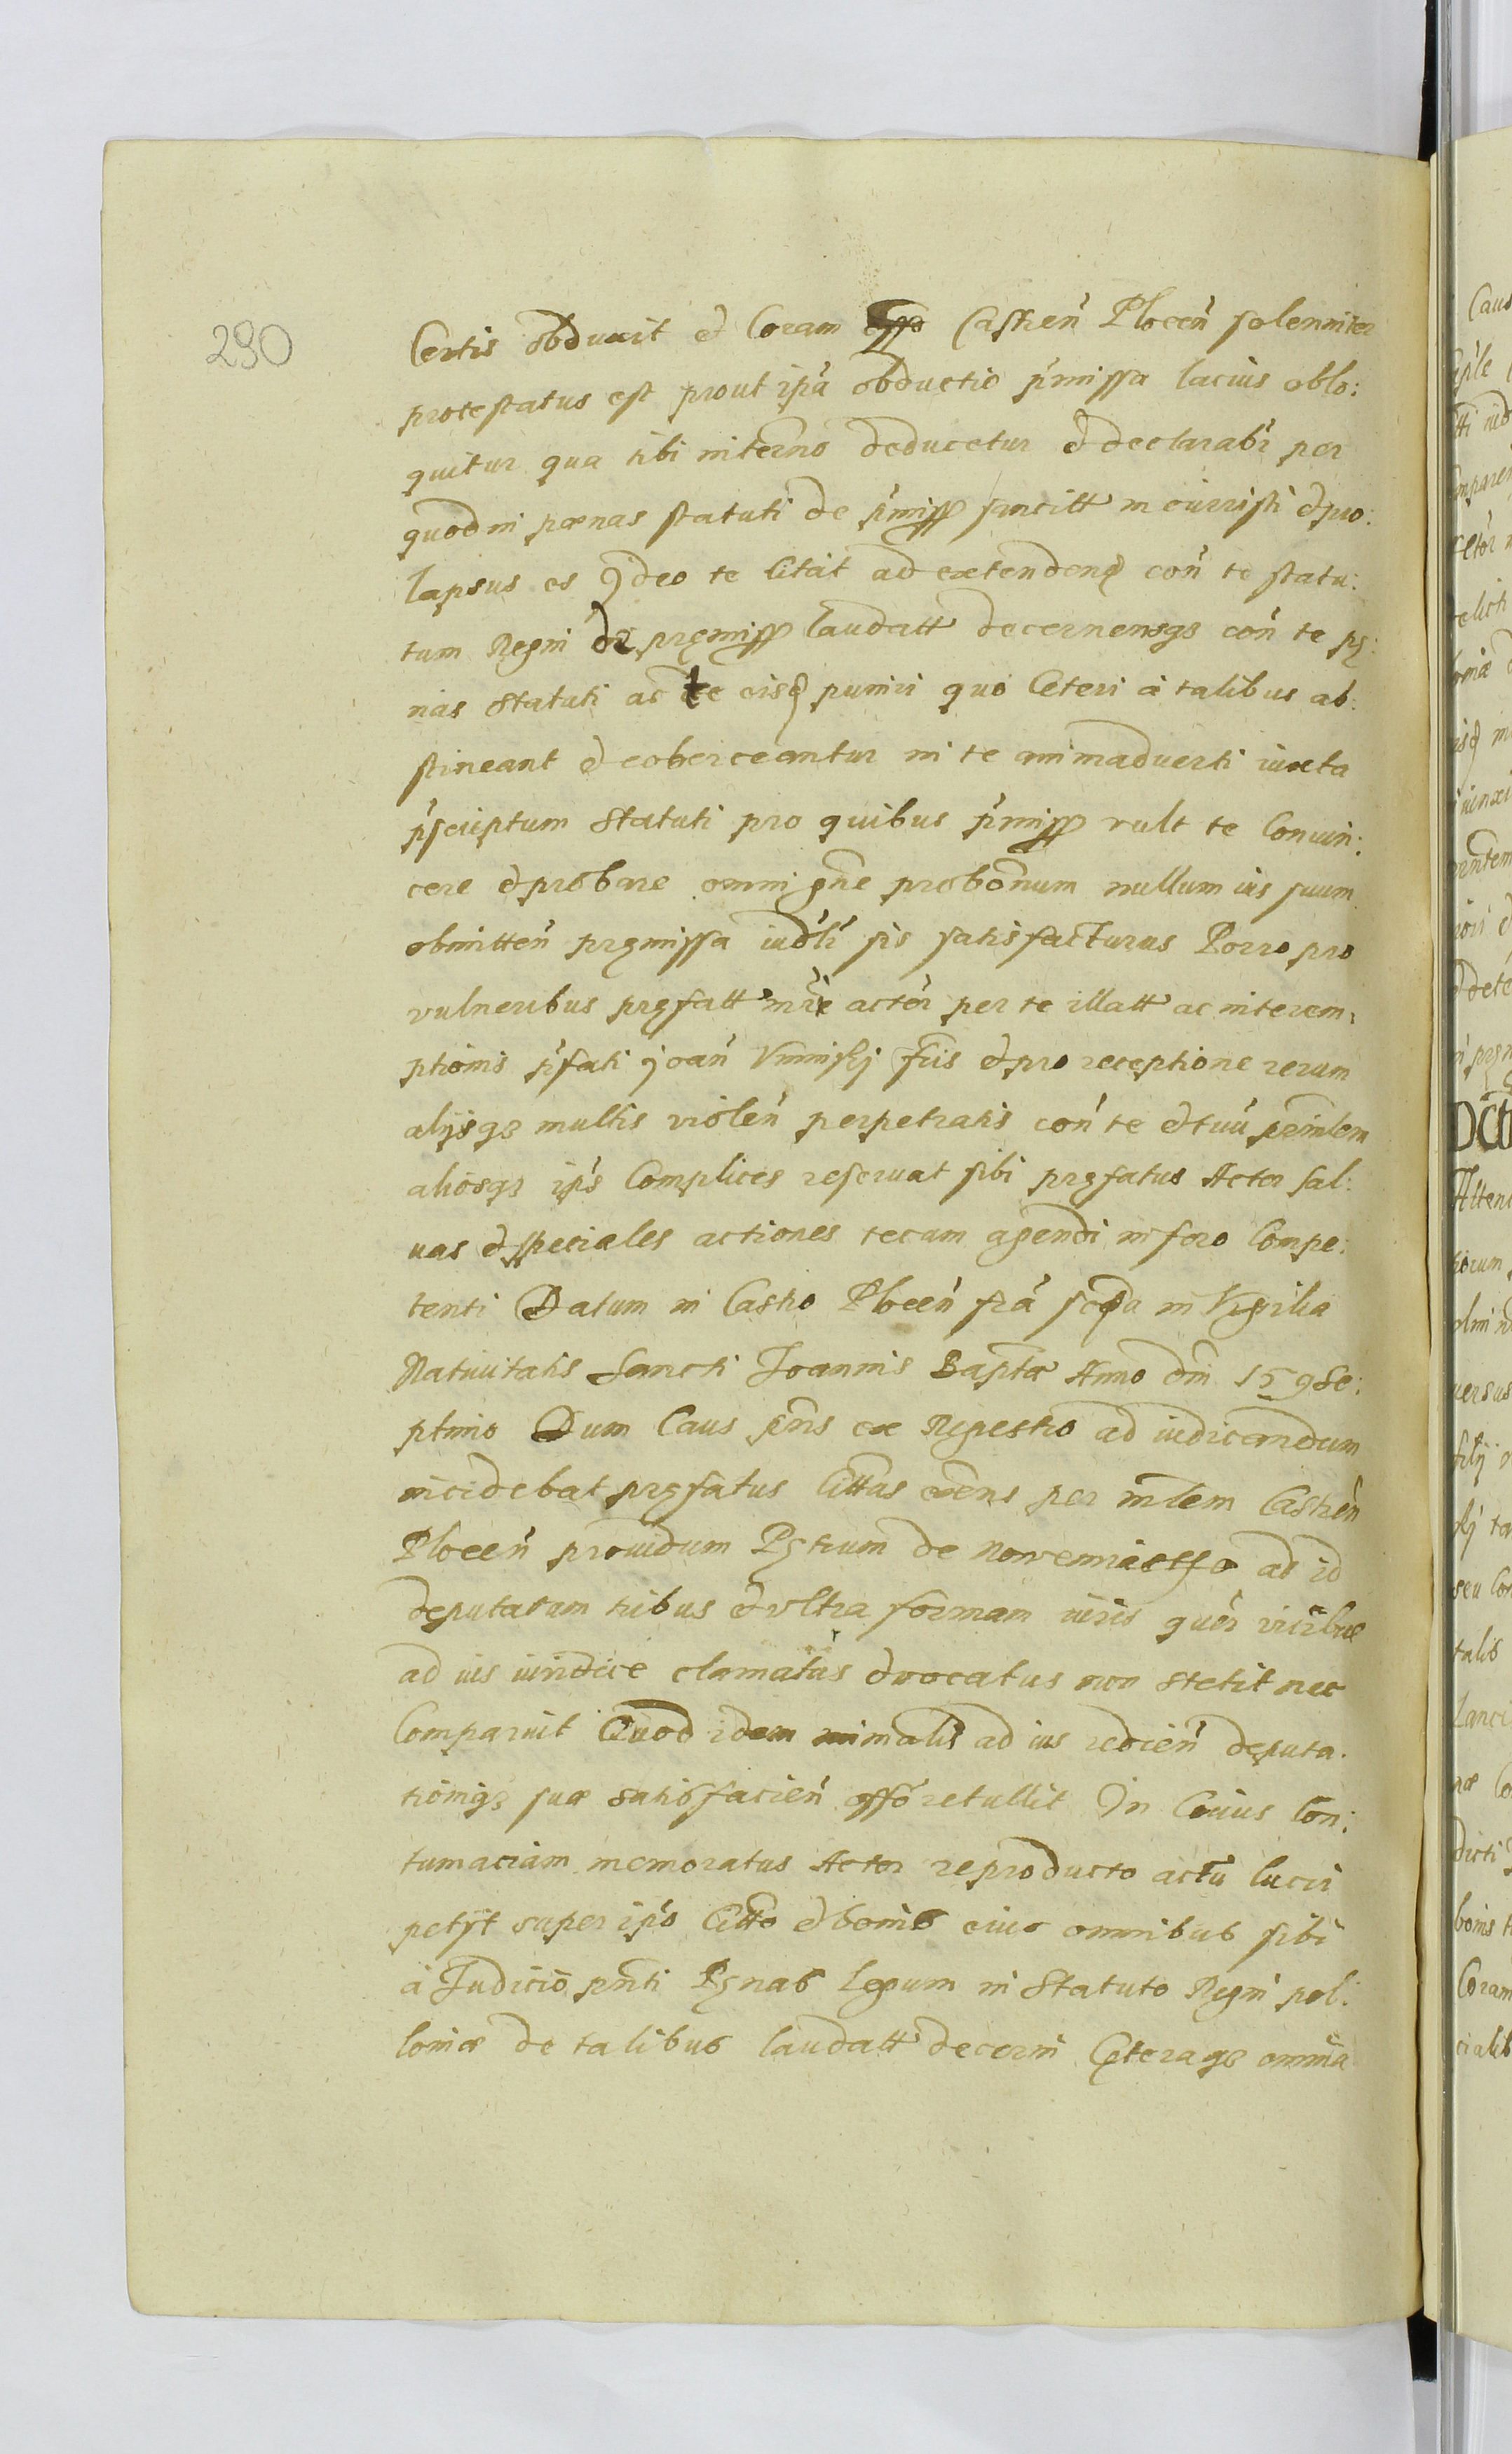 290
Certis obduxit et Coram offo Castren̄ Plocen̄ solenniter
protestatus est prout ip̄a obductio p̄missa lacius oblo:
quitur qua tibi in terno deducetur et declarabr̄ per
quod in pœnas statuti de p̄miss sancitt incurristi et pro:
lapsus es Ideo te citat ad extenden̄ con̄ te statu:
tum Regni de pręmiss laudatt decernensqȝ con̄ te pę:
nas Statuti ac te eisd puniri quo Ceteri a talibus ab:
stineant et coherceantur in te animaduerti iuxta
p̄scriptum Statuti pro quibus p̄miss vult te Conuin:
cere et probare omni gn̄e probonum nullum ius suum
obmitten̄ pręmissa iudli sis satisfacturus Porro pro
vulneribus pręfatt mr̄e actor per te illatt ac interem,
ptionis p̄fati Joan̄ Vminskj fr̄is et pro receptione rerum
alijsqȝ multis violen̄ perpetratis con̄ te et tuū prinlem
aliosqȝ ip̄s Complices reseruat sibi pręfatus Actor sal:
uas et speciales actiones tecum agendi in foro Compe:
tenti Datum in Castro Plocen̄ fr̄a scd̄a in Vigilia
Natiuitatis Sancti Joannis Baptæ Anno dn̄i 159 Se:
ptimo Dum Caus pn̄s ex Regestro ad iudicandum
incidebat pręfatus Cittus exens per mlem Castren̄
Plocen̄ prouidum Pętrum de Nowemiasto ad id
deputatum tribus et vltra formam iuris quor vicibus
ad ius iuridice clamatus et vocatus non stetit nec
Comparuit Quod idem minalis ad ius redien̄ deputa.
tioniqȝ suæ satisfacien̄ offo retullit In Cuius Con:
tumaciam memoratus Actor reproducto actu lucri
petijt super ip̄o Citto et bonis eius omnibus sibi
a Judicio pn̄ti Pęnas legum in Statuto Regni pol:
loniæ de talibus laudatt decerni Cęteraqȝ omnia